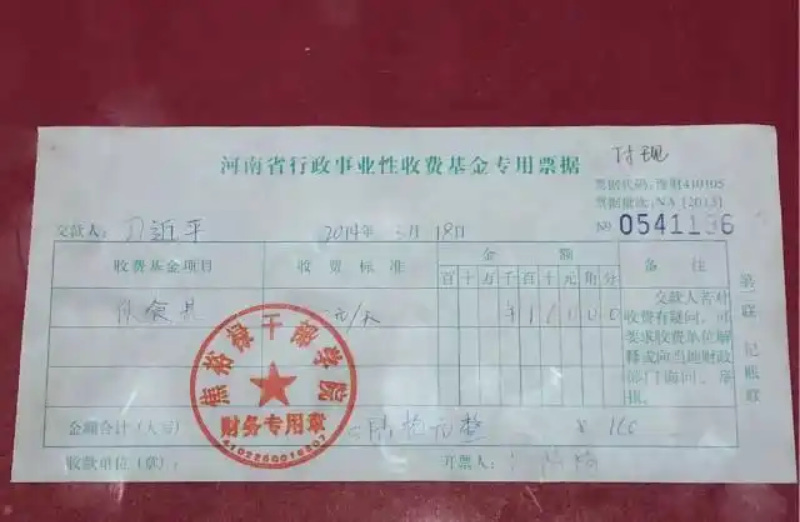 河南省行政事业性收费基金专用票据
付现
票据代码:豫财410105
票据批次:NA[2013]
№ 0541136
交款人: 习近平 2014年 3月 18日
收费基金项目 收费标准 金额 备注
百十万千百十元角分
伙食费 元/天 ¥16000
交款人若对收费有疑问,可要求收费单位解释或向当地财政部门询问、举报。
第 联 记账联
焦裕禄干部学院
财务专用章
金额合计(大写) 陆拾元整 ¥ 160
收款单位(章): 开票人: